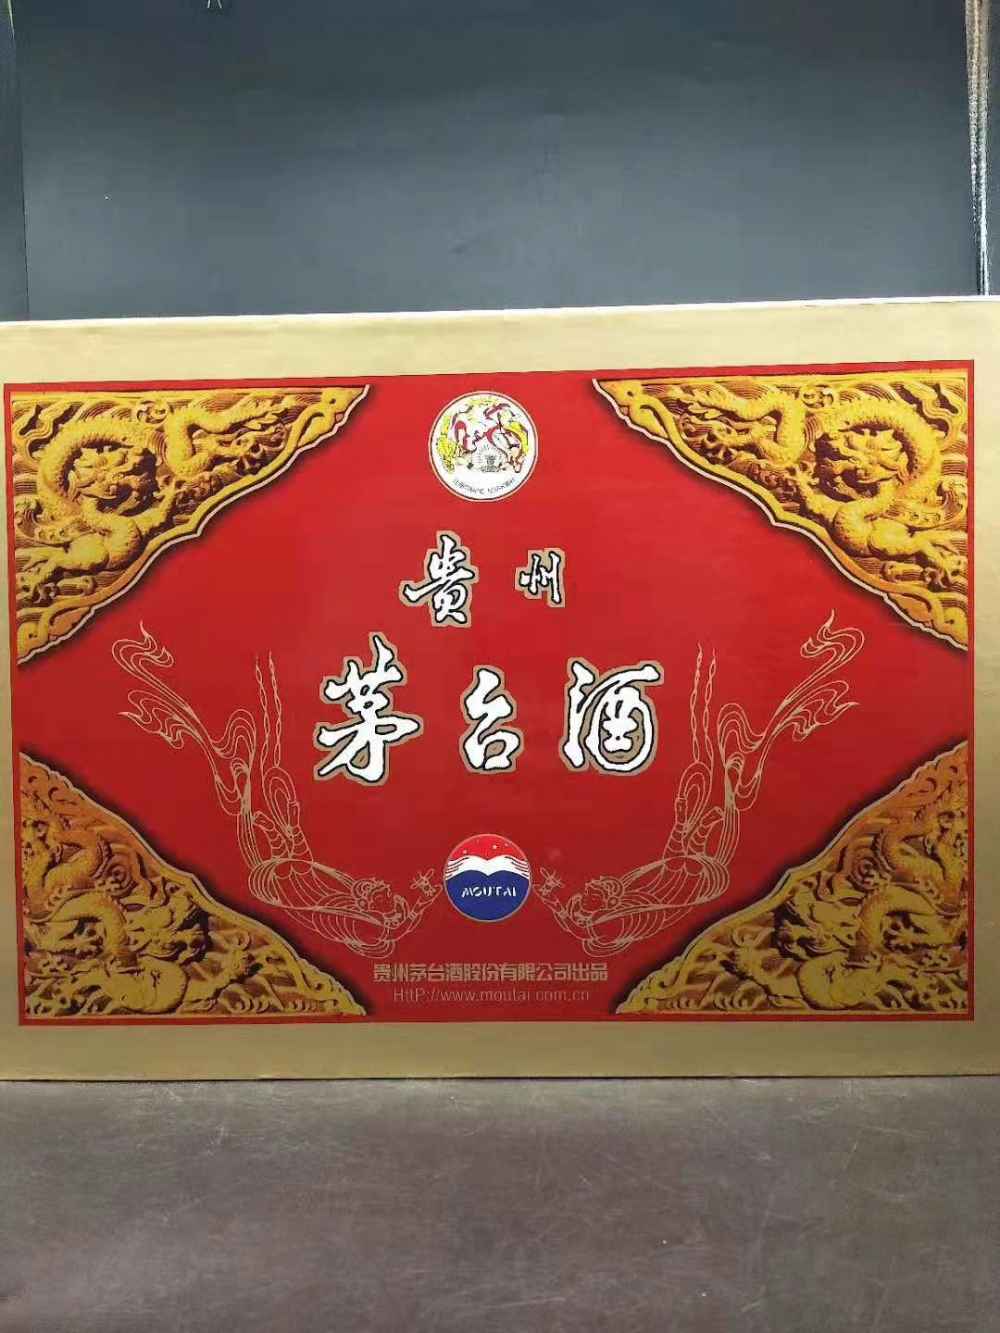 貴州
茅台酒
MOUTAI
贵州茅台酒股份有限公司出品
HttP://www.moutai.com.cn